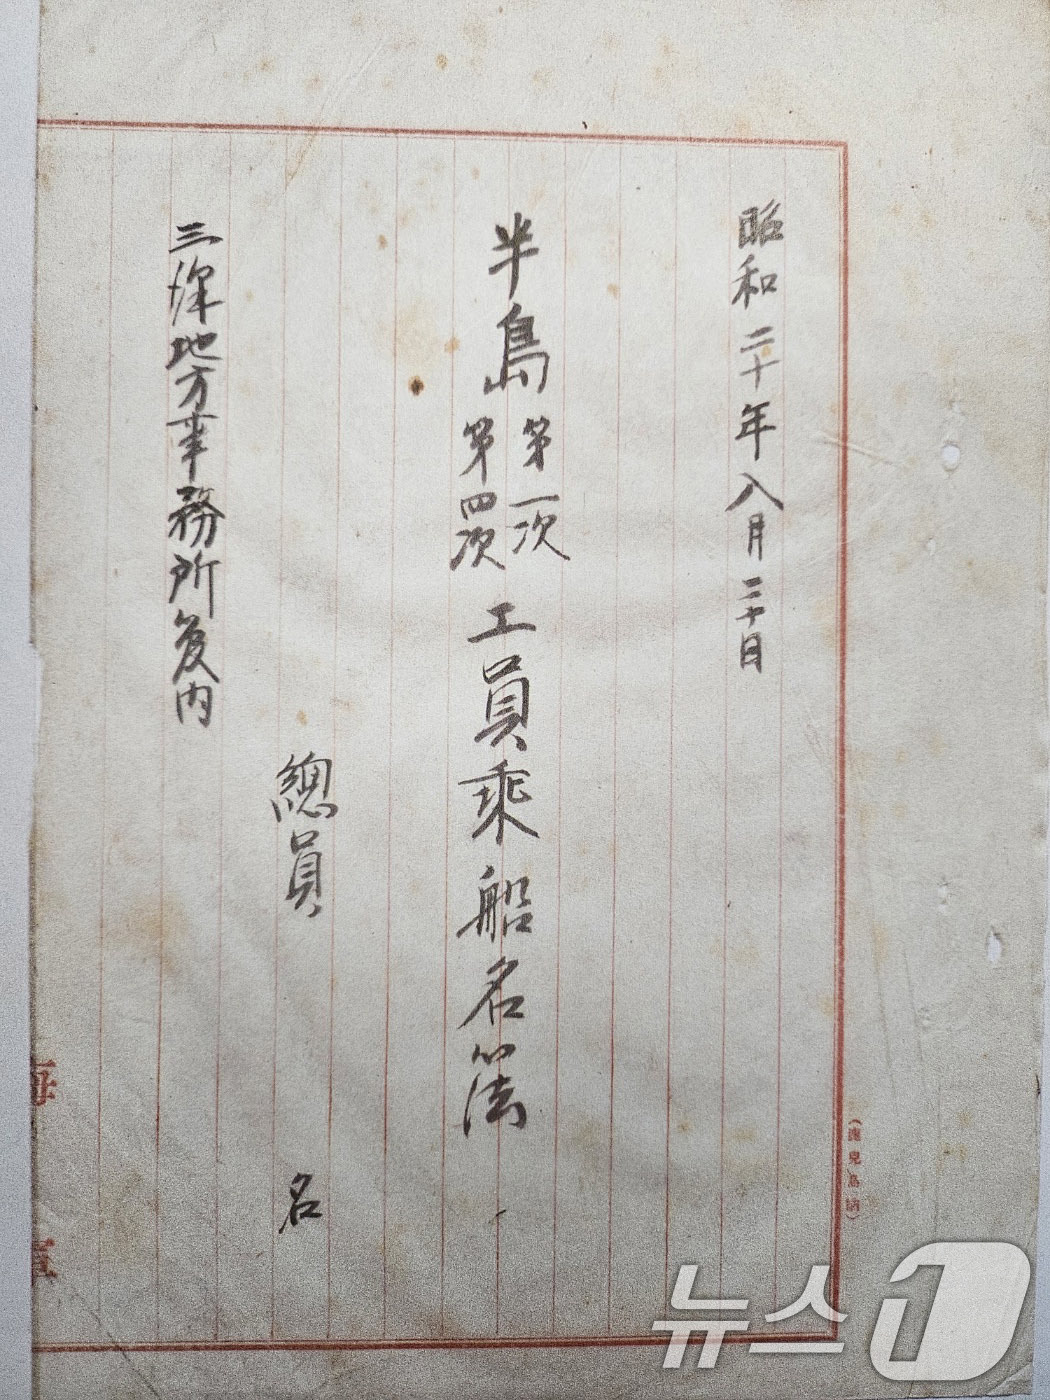 昭和二十年八月二十日
半島
第一次
第四次
工員乘船名簿
總員 名
三澤地方事務所復内
海軍
뉴스1